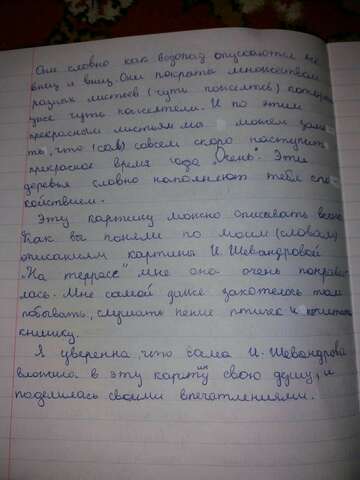 Они словно как водопад опускаются всё
вниз и вниз. Они пократа множеством
разных листьев (чути пожелтев)
уже чуть пожелтели. И по этим
прекрасным листьям мы можем заме
ть, что (сов) совсем скоро наступить
прекрасное время года "Осень". Эти
деревья словно наполняют тебя спо
койствием.
Эту картину можно описывать
Как вы поняли по моим (словам)
описаниям картина И. Шевандровой
"На террасе" мне она очень понрави
лась. Мне самой даже захотелось там
побывать, слушать пение птичек и почитать
книжку.
Я уверенна, что сама И. Шевандрова
вложила в эту картину свою душу, и
поделилась своими впечатлениями.